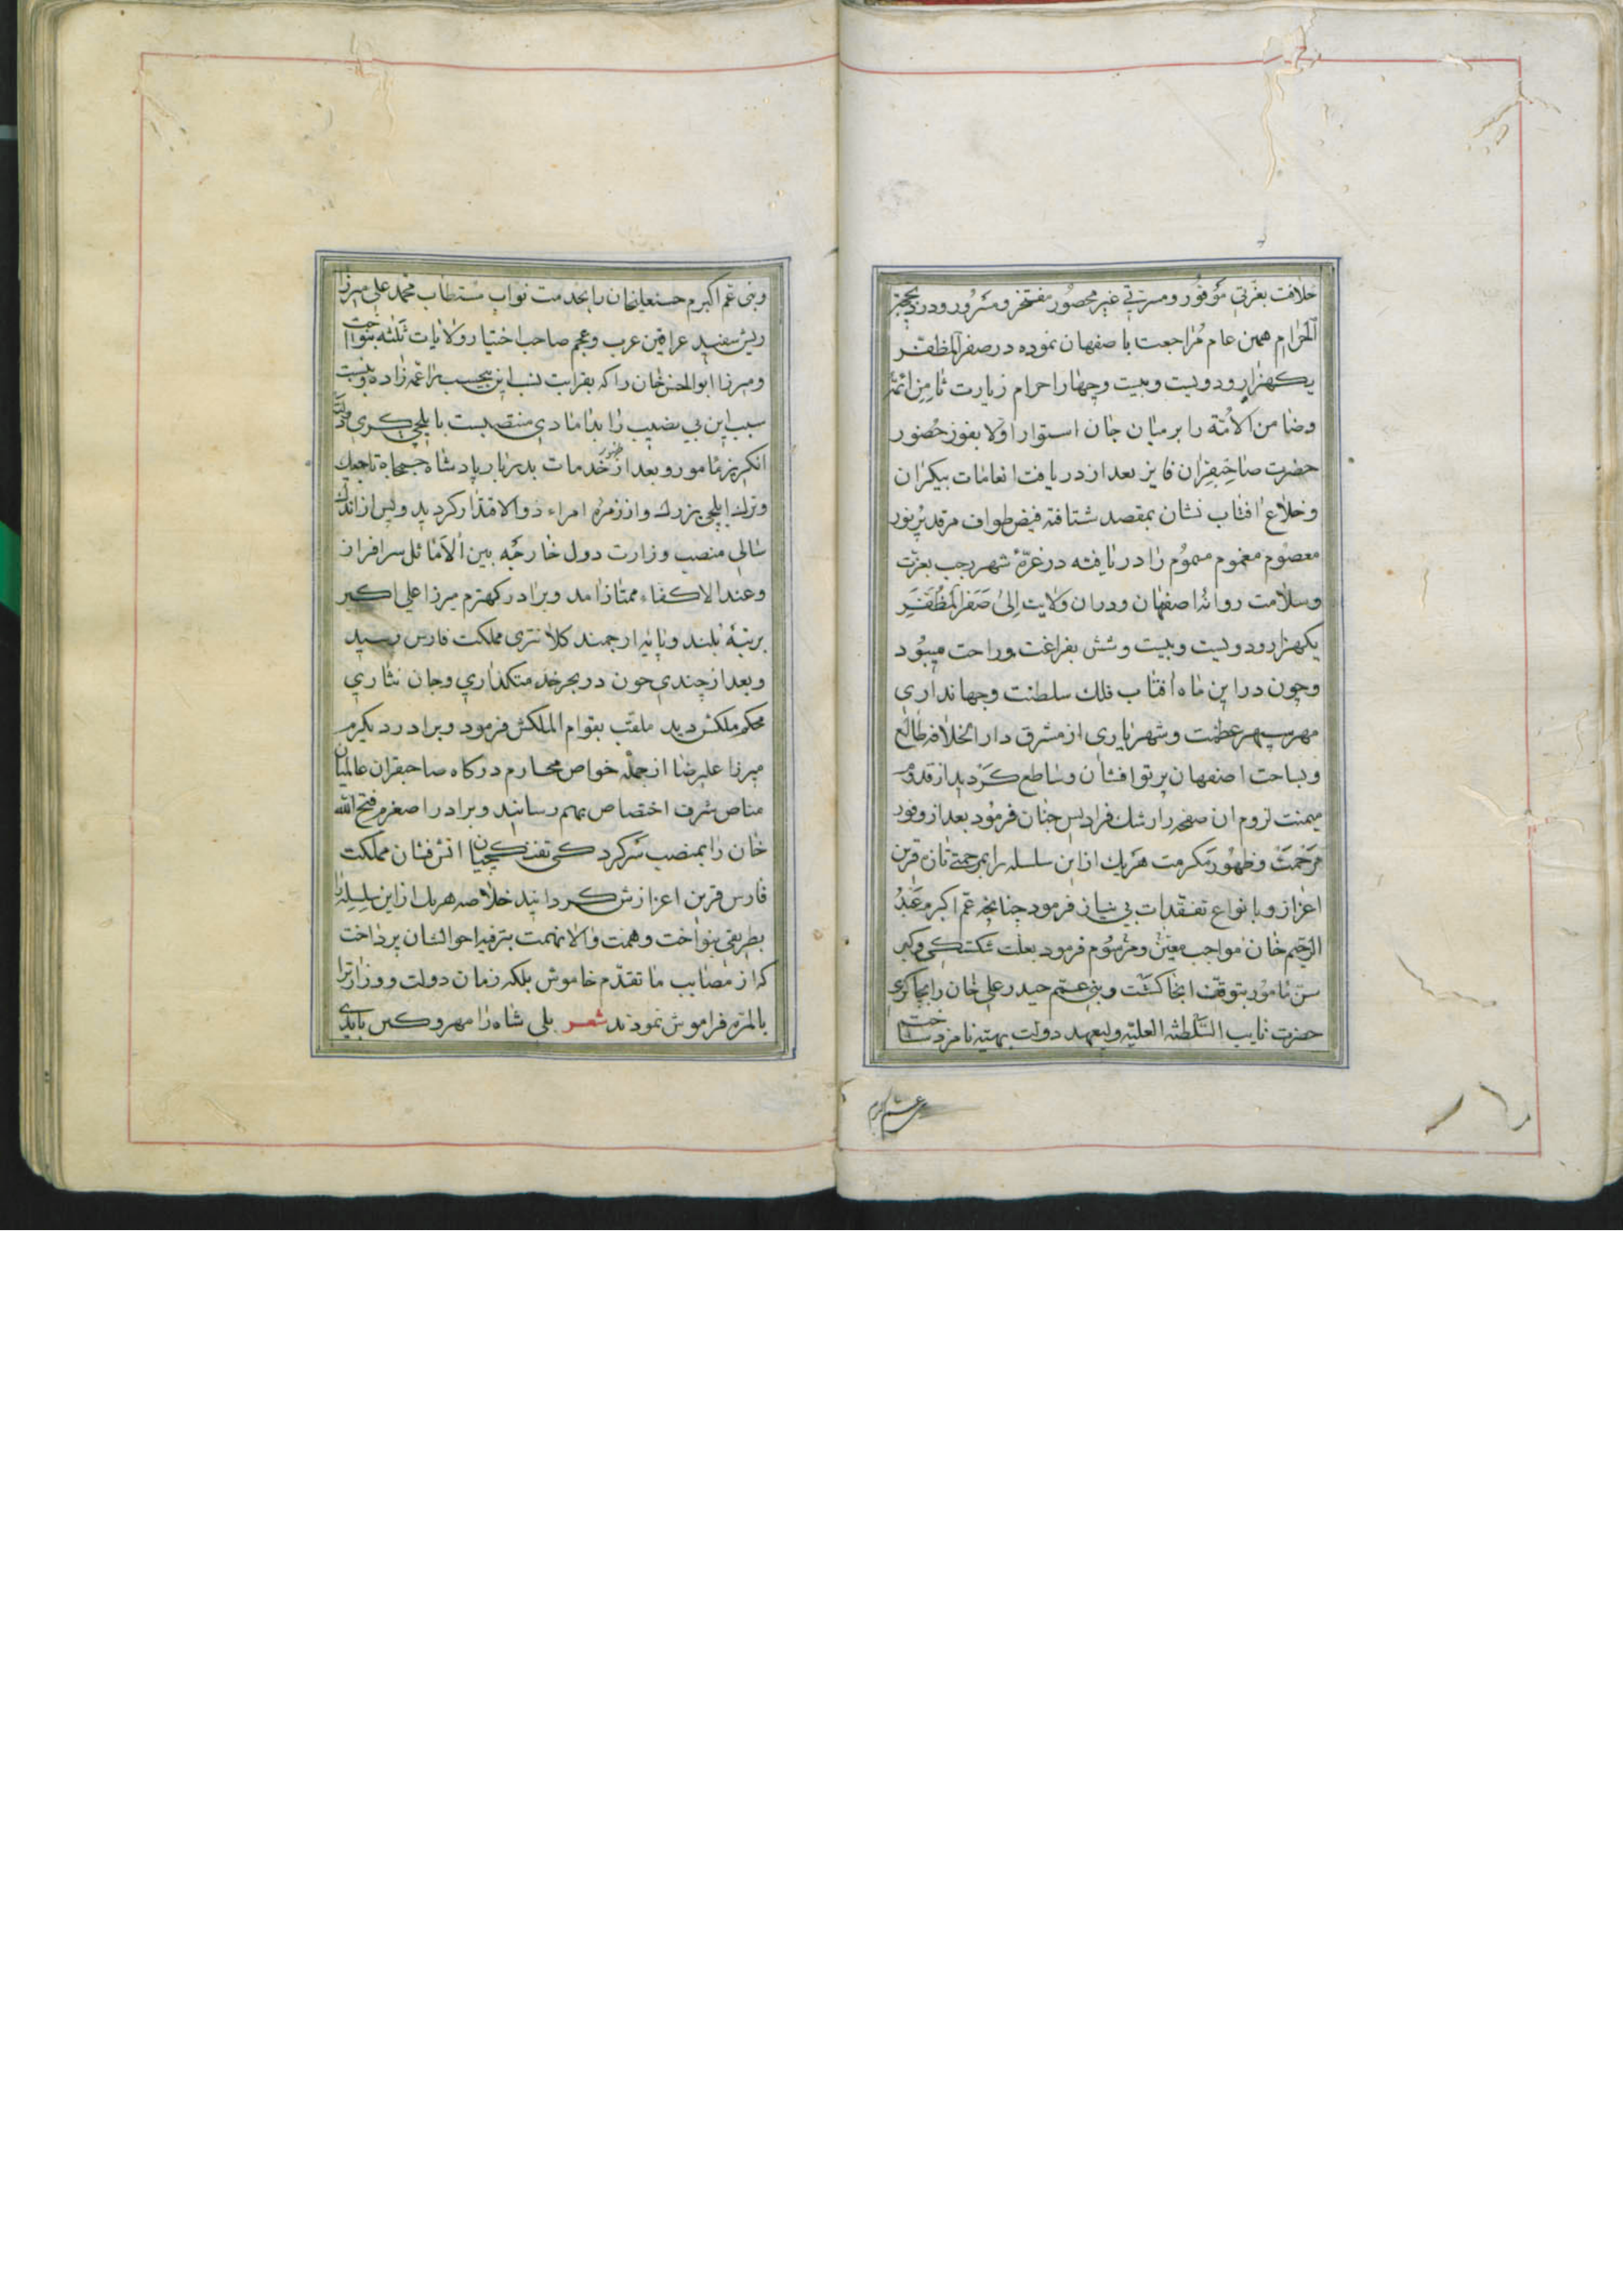 خلافت بعزتی موفور و مسرتی غیر محصور مفتخر و مسرور و در ذیحجة
الحرام همین عام مراجعت باصفهان نموده در صفر المظفر
یکهزار و دویست و بیست و چهار احرام زیارت ثامن ائمة
و ضامن الامة را بر میان جان استوار اولا بفوز حضور
حضرت صاحبقران فایز بعد از دریافت انعامات بیکران
و خلاع افتاب نشان بمقصد شتافته فیض طواف مرقد پر نور
معصوم مغموم مسموم را دریافته در غرّهٔ شهر رجب بعزت
و سلامت روانهٔ اصفهان و در ان ولایت الی صفر المظفر
یکهزار و دویست و بیست و شش بفراغت و راحت میبود
و چون در این ماه افتاب فلک سلطنت و جهانداری
مهر سپهر عظمت و شهریاری از مشرق دار الخلافه طالع
و بساحت اصفهان پرتو افشان و ساطع کردید از قدوم
میمنت لزوم ان صفحه را رشک فرادیس جنان فرمود بعد از وفور
مرحمت و ظهور مکرمت هریک از این سلسله را بمرحمتی تازه قرین
اعزاز و بانواع تفقدات بی نیاز فرمود چنانچه عم اکرم عبد
الرحیم خان مواجب معین و مرسوم فرمود بعلت شکستکی و کبر
سن مامور بتوقف انجا کشت و بنی عم حیدر علی خان را بچاکری
حضرت نایب السلطنه العلیه ولیعهد دولت بهیه نامزد ساخت
و بنی عم اکبرم حسنعلیخان را بخدمت نواب مستطاب محمد علی میرزا
ریش سفید عراقین عرب و عجم صاحب اختیار ولایات ثلثه بنواخت
و میرزا ابوالحسن خان را که بقرابت نسب این نجیب را عمه زاده و بنسبت
سبب این بی نصیب را بدامادی منتصبست بایلچی کری دولت
انکریز مامور و بعد از ظهور خدمات بدربار پادشاه جمجاه تاجیک
و ترک ایلچی بزرک و از زمرهٔ امراء ذوالاقتدار کردید و پس از اندک
سالی منصب وزارت دول خارجه بین الاماثل سرافراز
و عند الاکفاء ممتاز امد و برادر کهترم میرزا علی اکبر
برتبهٔ بلند و پایهٔ ارجمند کلانتری مملکت فارس رسید
و بعد از چندی چون در بحر خدمتکذاری و جان نثاری
محکم ملکش دید ملقب بقوام الملکش فرمود و برادر دیکرم
میرزا علیرضا از جمله خواص محارم درکاه صاحبقران عالمیان
مناص شرف اختصاص بهم رسانید و برادر اصغرم فتح الله
خان را بمنصب سرکردکی تفنکچیان اتش فشان مملکت
فارس قرین اعزازش کردانید خلاصه هریک از این سلسله را
بطریقی بنواخت و همت والا نهمت بترفیه احوالشان پرداخت
که از مصایب ما تقدم خاموش بلکه زمان دولت و وزارترا
بالمره فراموش نمودند شعر بلی شاه را مهر و کین بایدی